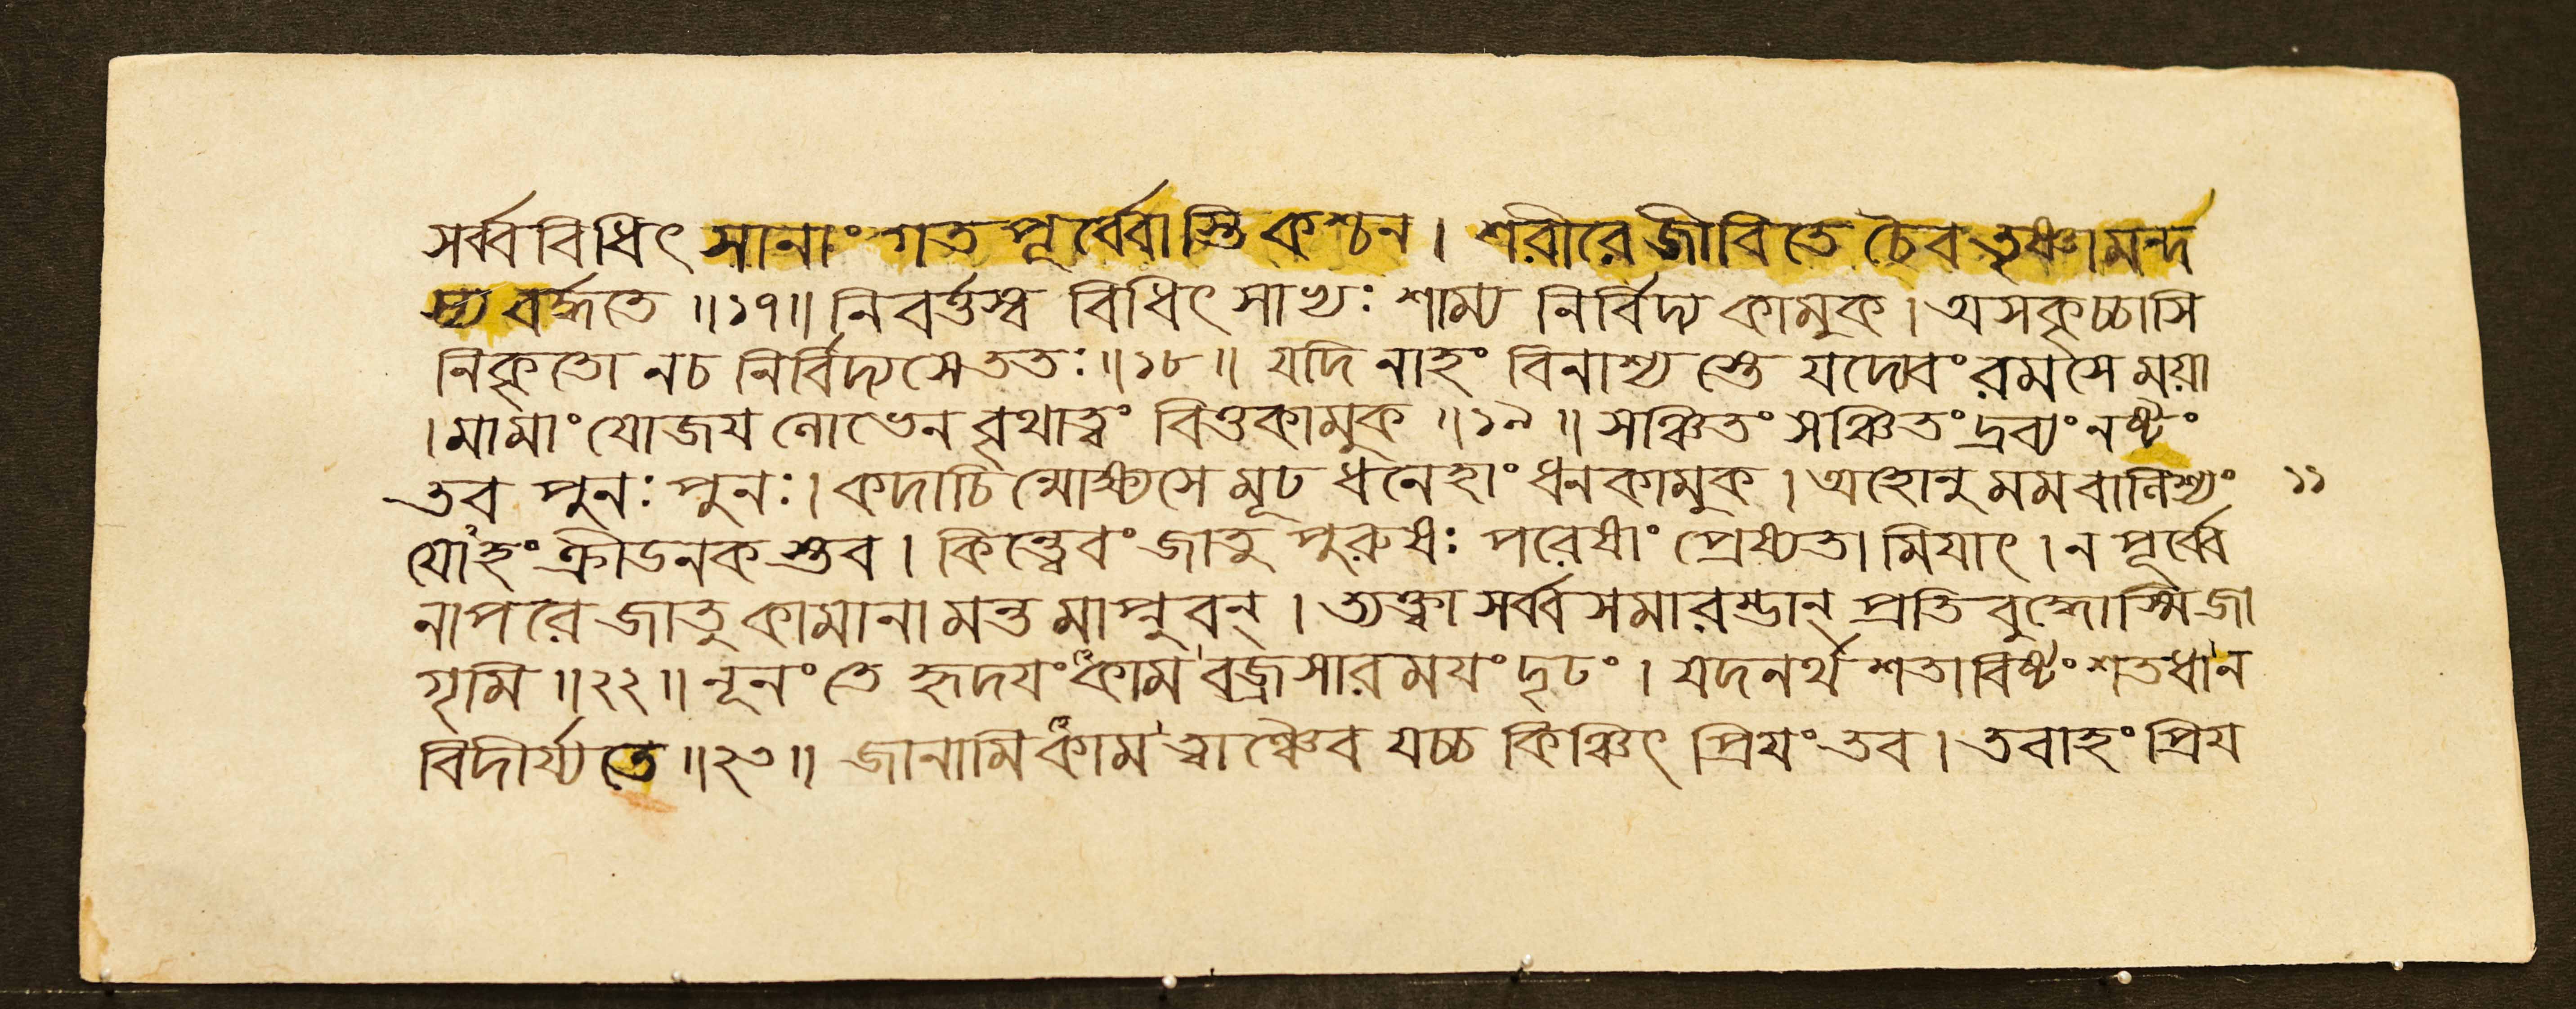 সর্ব্ববিধিৎসানাং গতপূর্ব্বোস্তি কশ্চন। শরীরে জীবিতে চৈব তৃষ্ণা মন্দ
স্য বর্দ্ধতে ॥১৭॥ নিবর্ত্তস্ব বিধিৎসাখ্যঃ শাম্য নির্বিদ্য কামুক। অসকৃচ্চাসি
নিকৃতো নচ নির্বিদ্যসে ততঃ ॥১৮॥ যদি নাহং বিনাশ্যস্তে যদ্যেবং রমসে ময়া
। মামাং যোজয় লোভেন বৃথাত্বং বিত্তকামুক ॥১৯॥ সঞ্চিতং সঞ্চিতং দ্রব্যং নষ্টং
তব পুনঃ পুনঃ। কদাচিন্মোক্ষ্যসে মূঢ ধনেহাং ধনকামুক। অহোনু মম বালিশ্যং ১১
যোহং ক্রীডনকস্তব। কিন্ত্বেবং জাতু পুরুষঃ পরেষাং প্রেষ্যতামিযাৎ। ন পূর্ব্বে
নাপরে জাতু কামানামন্তমাপ্নুবন্। ত্যক্ত্বা সর্ব্বসমারম্ভান্ প্রতিবুদ্ধোস্মি জা
গৃমি ॥২২॥ নূনং তে হৃদযং কাম বজ্রসারময়ং দৃঢং। যদনর্থশতাবিষ্টং শতধা ন
বিদীর্য্যতে ॥২৩॥ জানামি কাম ত্বাঞ্চৈব যচ্চ কিঞ্চিৎ প্রিয়ং তব। তবাহং প্রিয